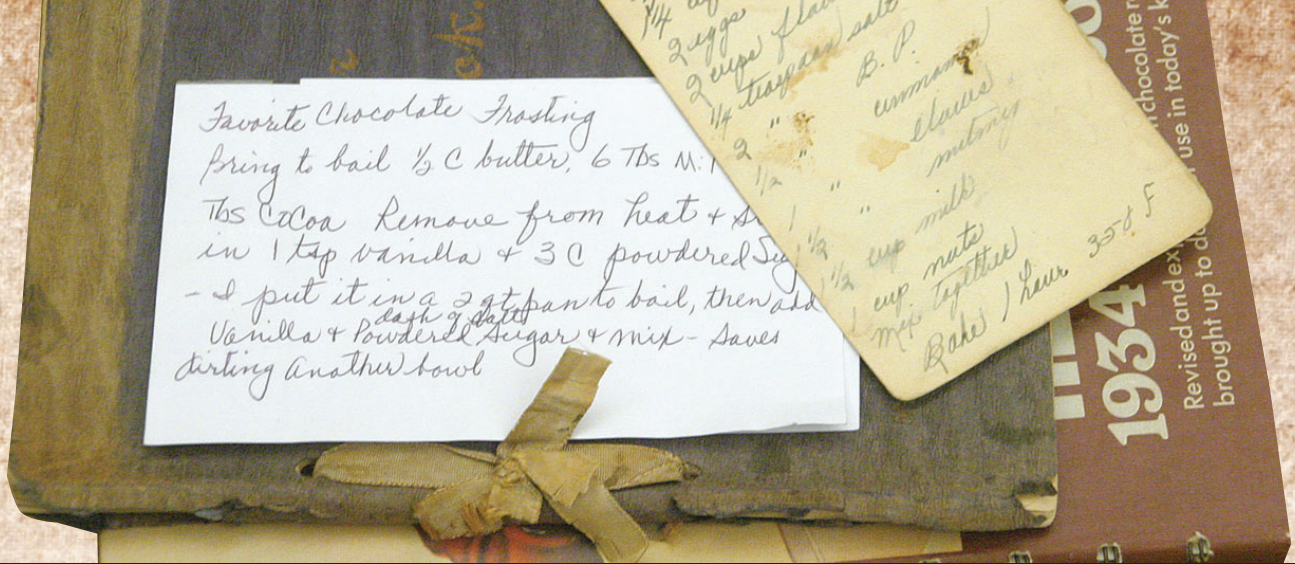 Favorite Chocolate Frosting
Bring to boil ½ C butter, 6 Tbs M
Tbs Cocoa Remove from heat +
in 1 tsp vanilla + 3 C powdered Sug
- I put it in a 2 qt pan to boil, then add
dash of salt
Vanilla & Powdered Sugar & mix - Saves
dirting another bowl
1/4
2 eggs
2 cups flou
1/4 teaspoon salt
2 " B. P.
1/2 " cinnamon
" cloves
nutmeg
1 1/2 cup milk
1/2 cup nuts
mix together
Bake 1 hour 350 F
1934
chocolate
Revised and ex
use in today's k
brought up to da